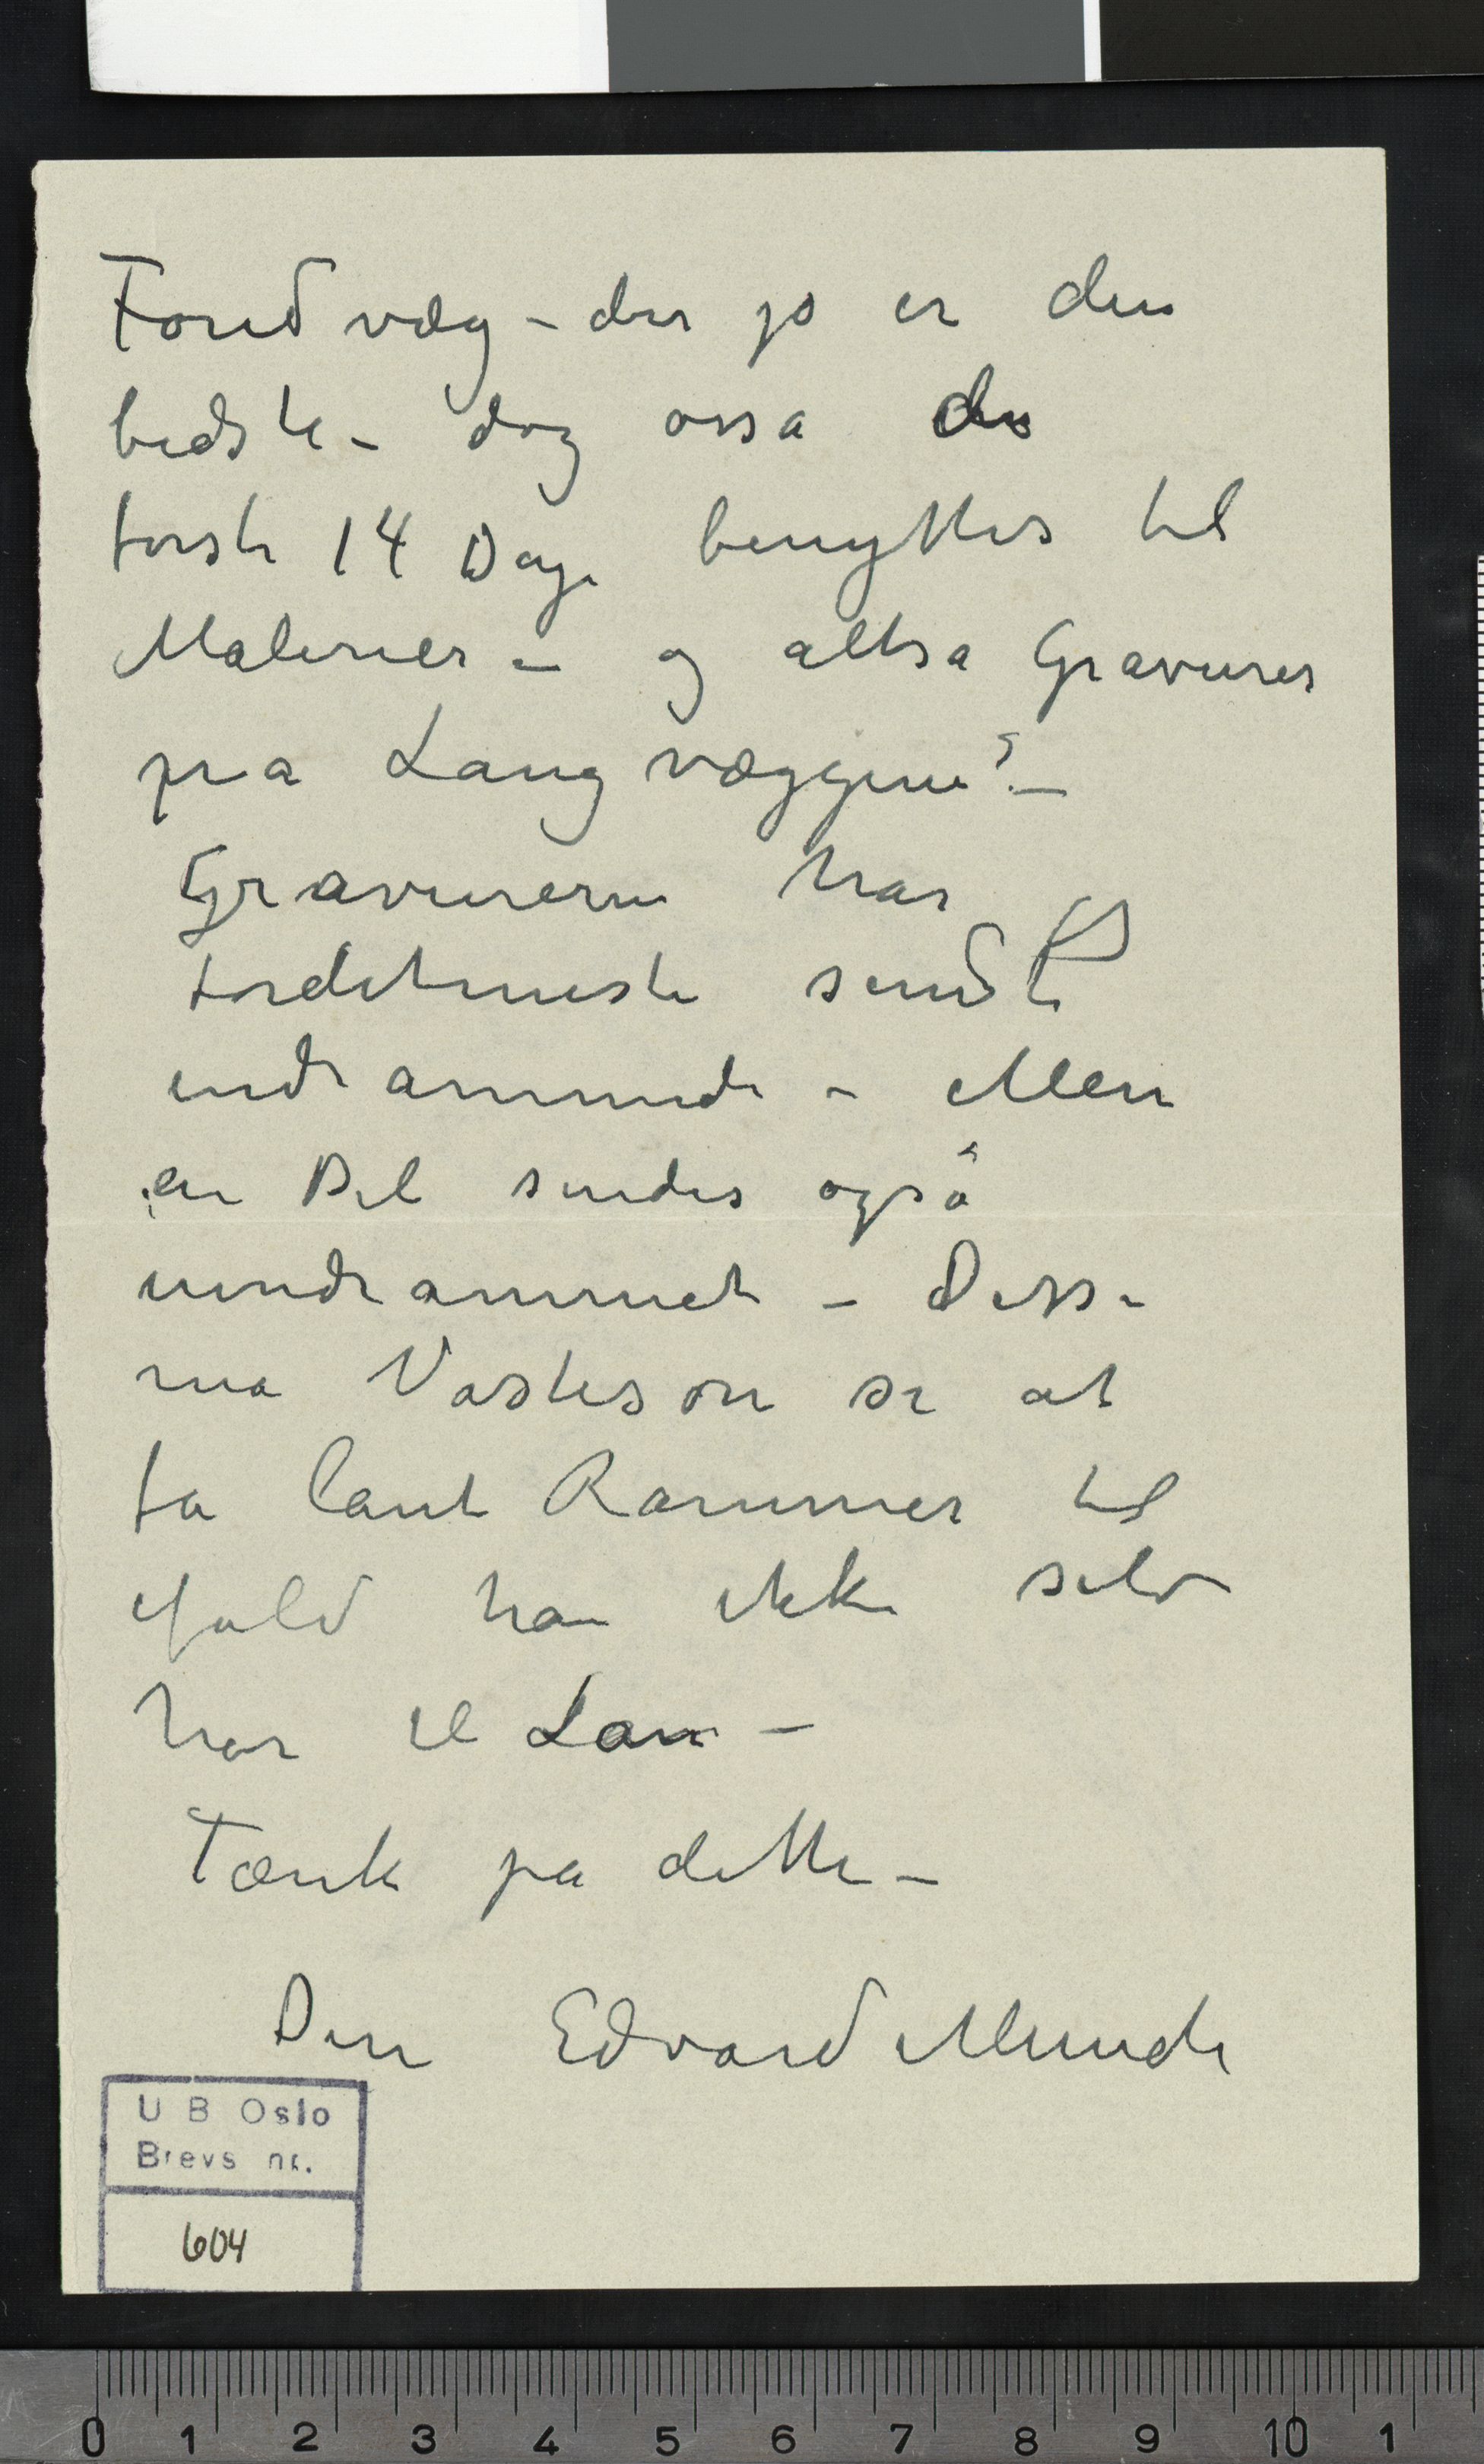 Fondvæg – der jo er den
bedste – dog ossa de
første 14 Dage benyttes til
Malerier – og altsa Gravurer
pra Langvæggene? –
Gravurerne har jeg
fordetmeste sendt
indrammede – Men
en Del sendes også
uindrammet – Disse
ma Vasteson se at
fa lant Rammer til
ifald han ikke selv
har til Lan –
Tænk pa dette –
Din Edvard Munch
U B Oslo
Brevs nr.
604
0 1 2 3 4 5 6 7 8 9 10 1